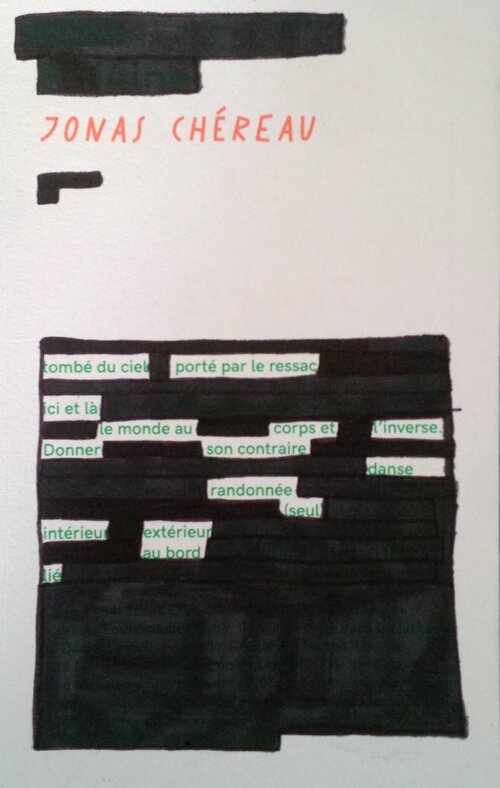 JONAS CHÉREAU
tombé du ciel porté par le ressac
ici et là
le monde au corps et l'inverse.
Donner son contraire
danse
randonnée
(seul
intérieur extérieur
au bord
lié